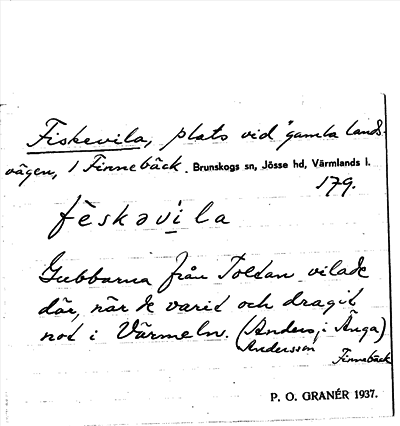 Fiskevila, plats vid "gamla lands-
vägen, i Finnebäck. Brunskogs sn, Jösse hd, Värmlands l.
179.
fèskəvìla
Gubbarna från Toltan vilade
där, när de varit och dragit
not i Värmeln. (Anders i Änga)
Andersson
Finnebäck
P. O. GRANÉR 1937.